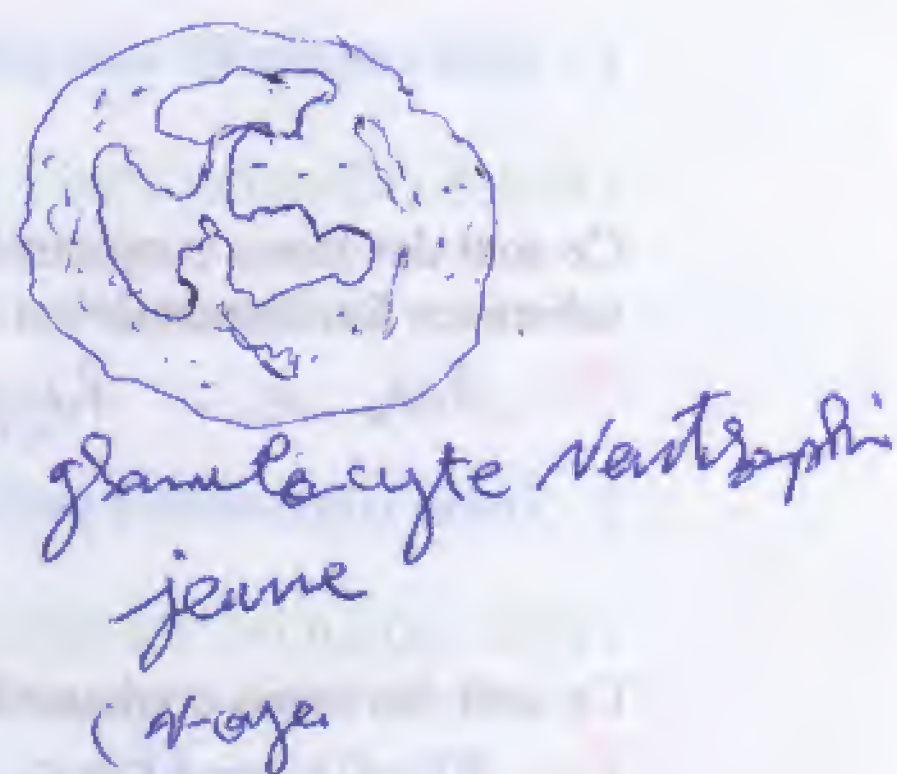 granulocyte Neutrophi
jeune
(